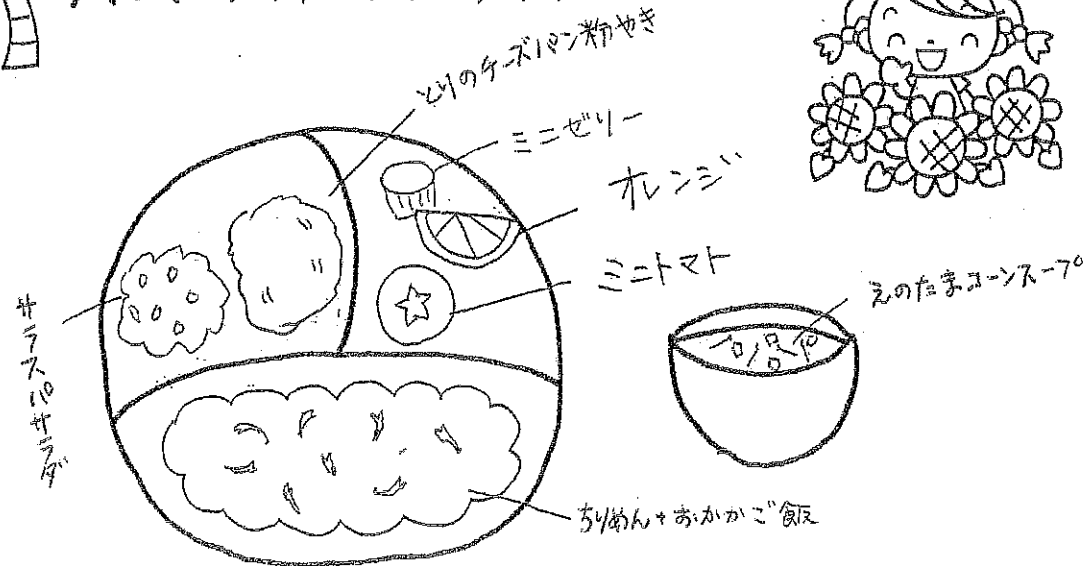 とりのチーズパン粉やき
ミニゼリー
オレンジ
ミニトマト
えのたまコーンスープ
サラスパサラダ
ちりめん+おかかご飯